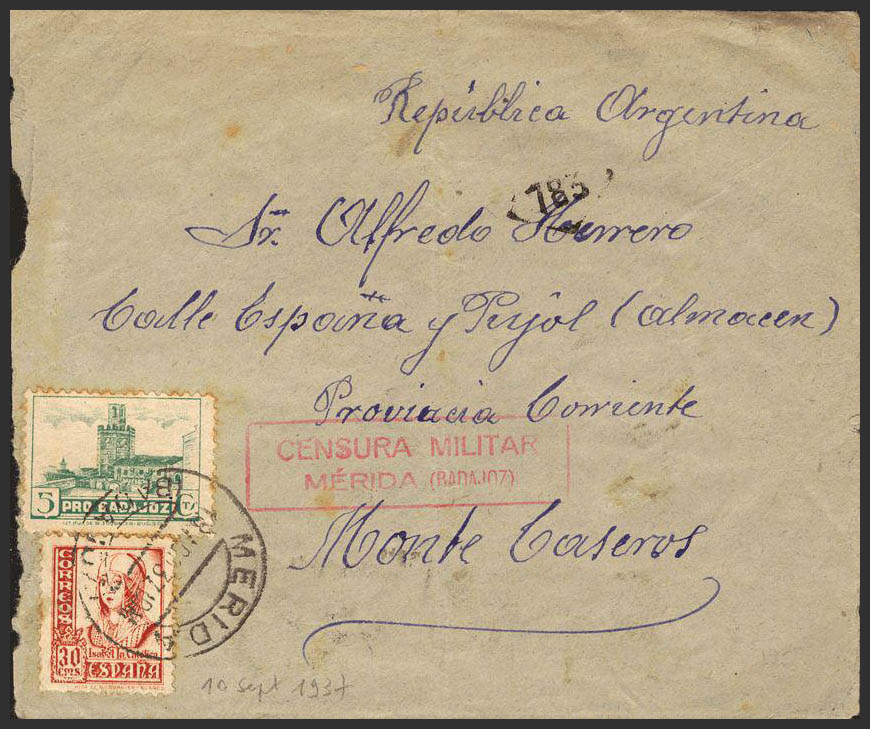 República Argentina
783
Sr. Alfredo Herrero
Calle España y Pujol (almacen)
Provincia Corriente
CENSURA MILITAR
MÉRIDA (BADAJOZ)
Monte Caseros
5 PRO BADAJOZ CTS
MERIDA
CORREOS
30 CTMS
Isabel la Católica
ESPAÑA
10 Sept 1937